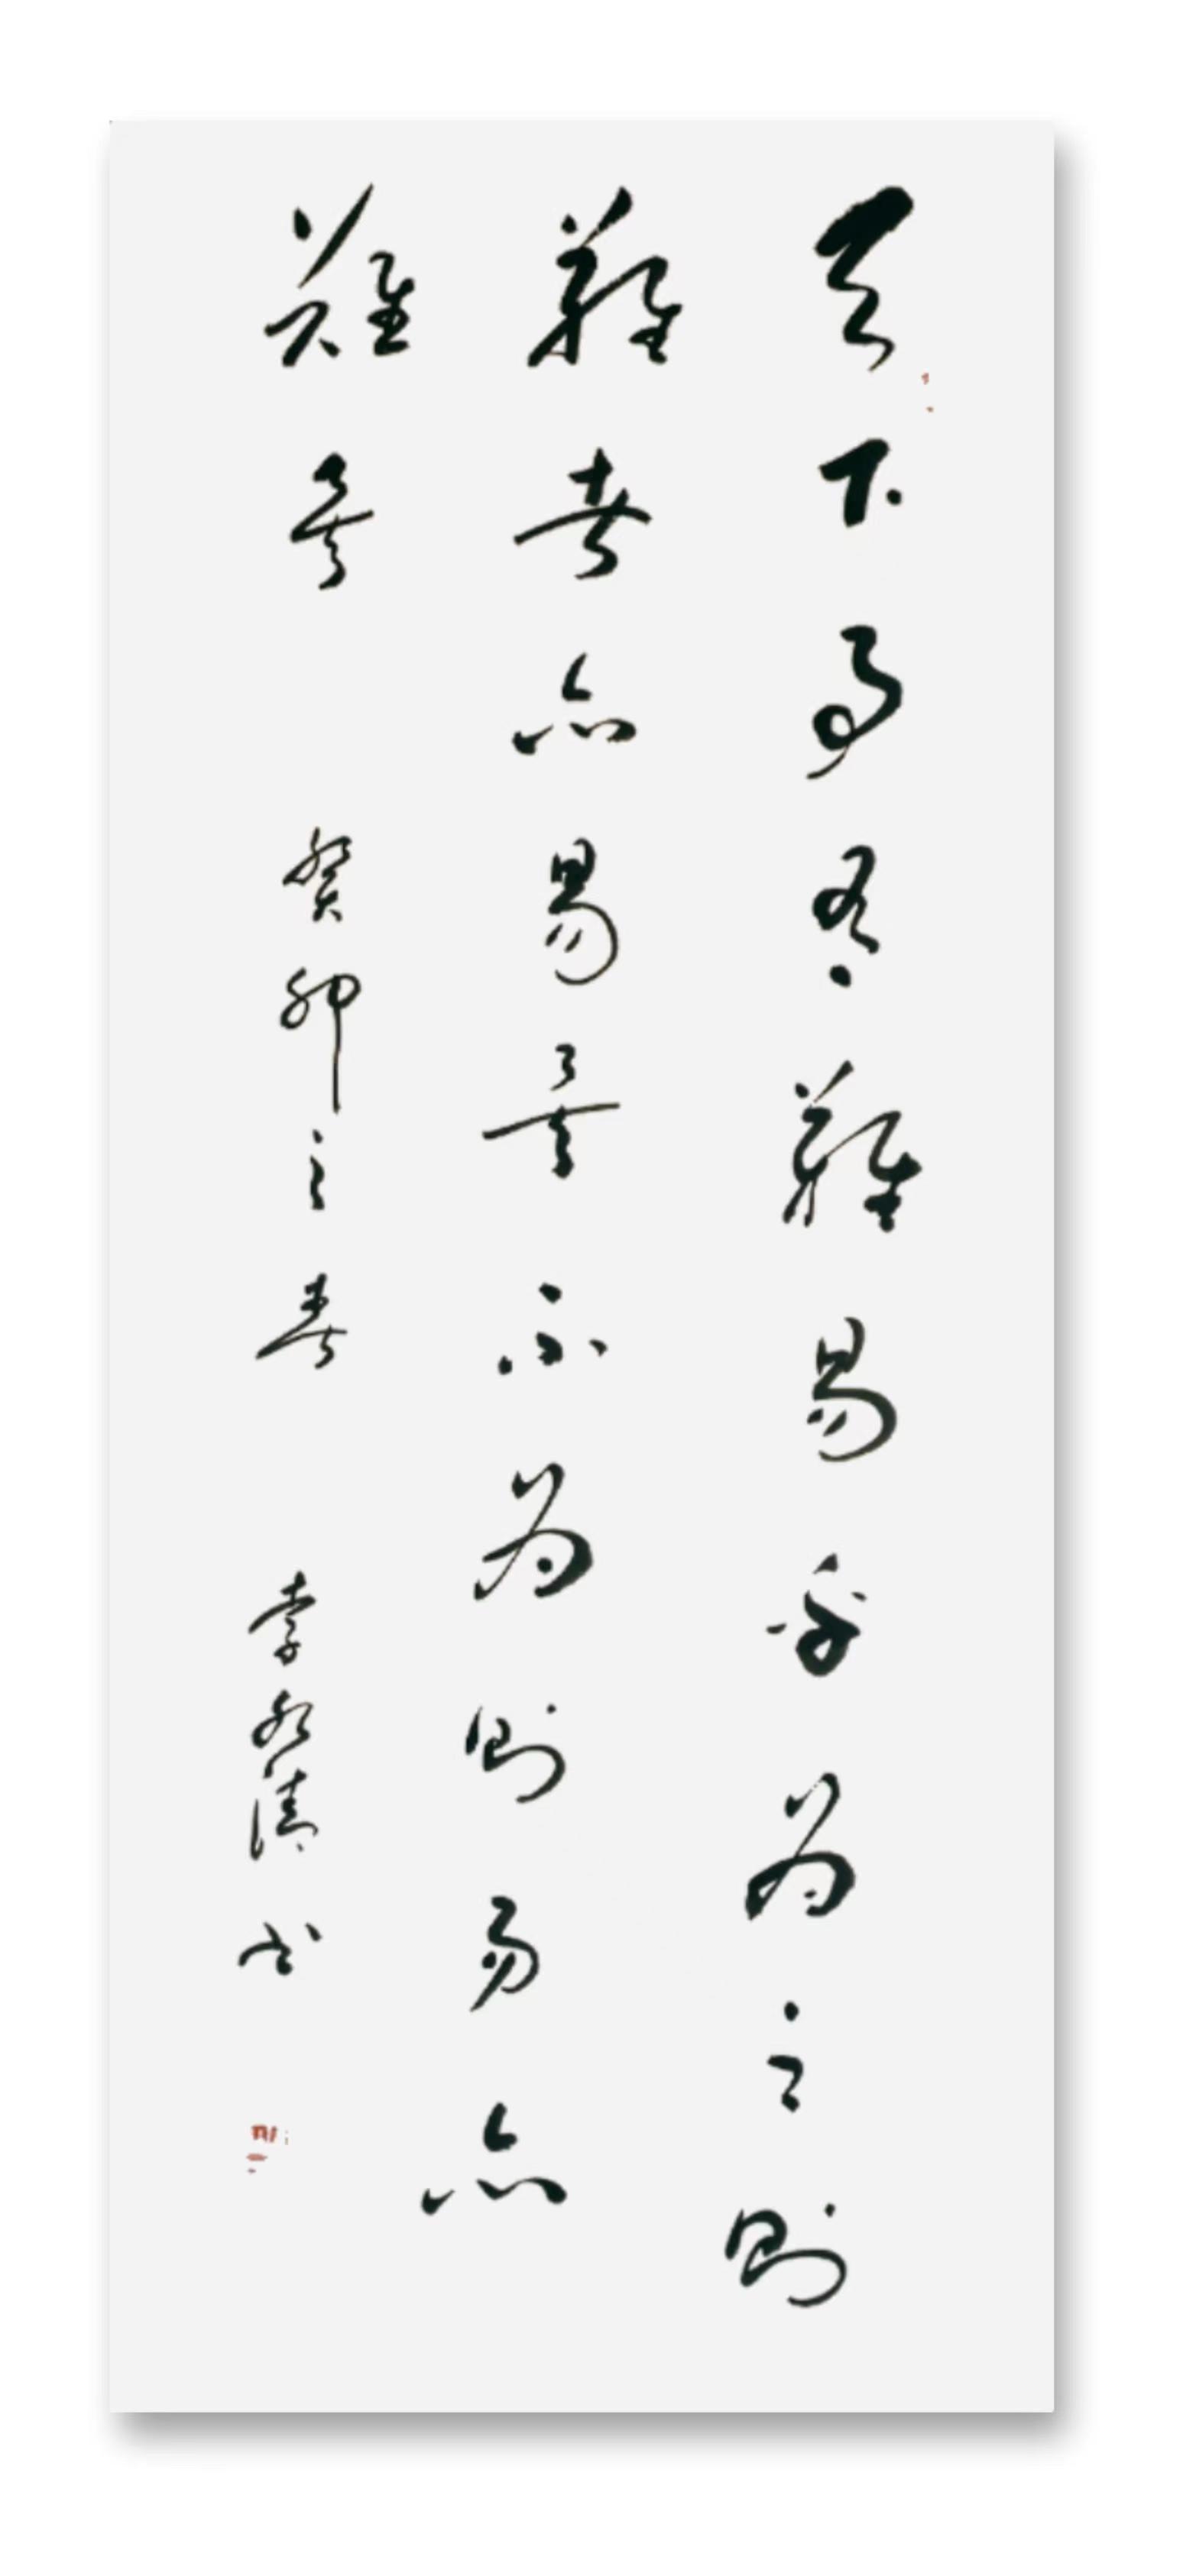 天下事有難易乎為之則
難者亦易矣不為則易亦
難矣 癸卯之春 李永清书